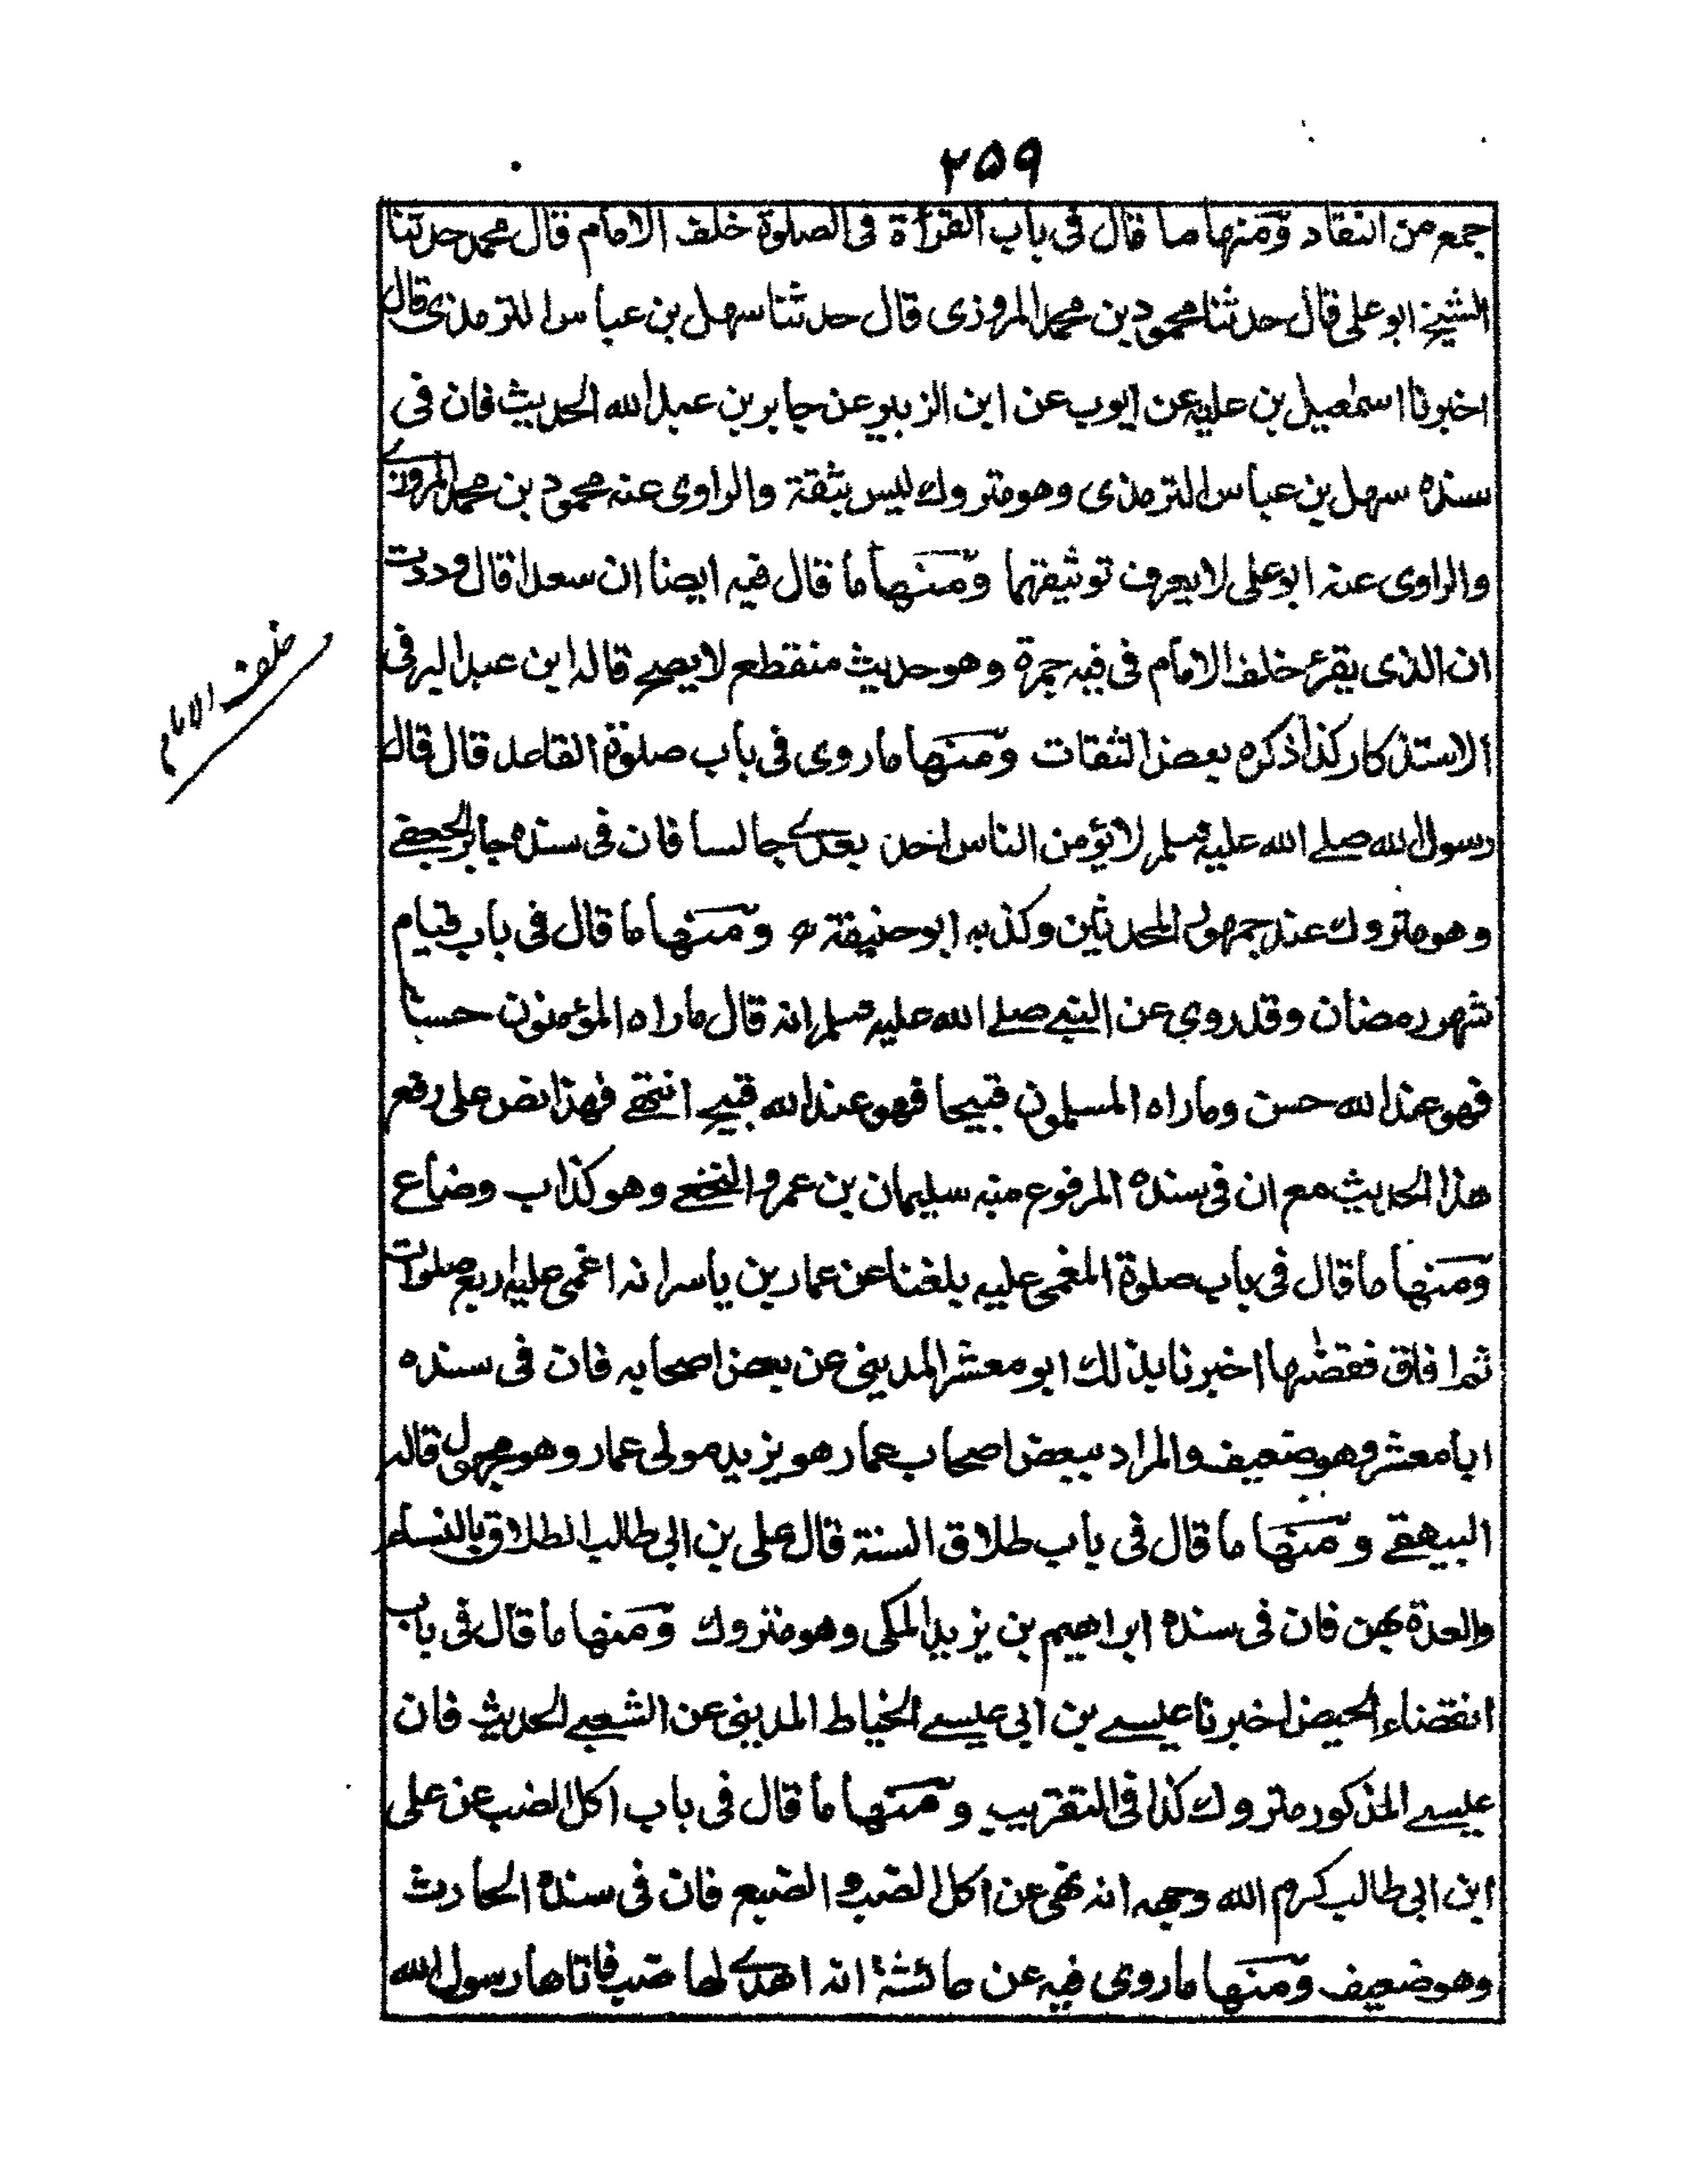 ۲۵۹
جمعه من انتقاد ومنها ما قال فی باب القرأة فی الصلوة خلف الامام قال محمد حدثنا
الشیخ ابو علی قال حدثنا محمود بن محمد المروزی قال حدثنا سهل بن عباس الترمذی قال
اخبرنا اسمٰعیل بن علیه عن ایوب عن ابن الزبیر عن جابر بن عبد الله الحدیث فان فی
سنده سهل بن عباس الترمذی وهو متروك لیس بثقة والراوی عنه محمود بن محمد المروزے
والراوی عنه ابو علی لا یعرف توثیقهما ومنها ما قال فیه ایضا ان سعدا قال وددت
ان الذی یقرئ خلف الامام فی فیه جمرة وهو حدیث منقطع لا یصح قاله ابن عبد البر فی
الاستذکار کذا ذکره بعض الثقات ومنها ما روی فی باب صلوة القاعد قال قال
رسول الله صلے الله علیه وسلم لا یؤمن الناس احد بعدے جالسا فان فی سنده جابر الجعفے
وهو متروك عند جمهور المحدثین وکذبه ابو حنیفة رح ومنها ما قال فی باب قیام
شهر رمضان وقد روی عن النبے صلے الله علیه وسلم انه قال ما راه المؤمنون حسنا
فهو عند الله حسن وما راه المسلمون قبیحا فهو عند الله قبیح انتهے فهذا نص علی رفع
هذا الحدیث مع ان فی سنده المرفوع منه سلیمان بن عمرو النخعے وهو کذاب وضاع
ومنها ما قال فی باب صلوة المغمی علیه بلغنا عن عمار بن یاسر انه اغمی علیه اربع صلوات
ثم افاق فقضٰها اخبرنا بذلك ابو معشر المدینی عن بعض اصحابه فان فی سنده
ابا معشر وهو ضعیف والمراد ببعض اصحاب عمار هو یزید مولی عمار وهو مجهول قاله
البیهقے ومنها ما قال فی باب طلاق السنة قال علی بن ابی طالب الطلاق بالنساء
والعدة بهن فان فی سنده ابراهیم بن یزید المکی وهو متروك ومنها ما قال فی باب
انقضاء الحیض اخبرنا عیسے بن ابی عیسے الخیاط المدینی عن الشعبے الحدیث فان
عیسے المذکور متروك کذا فی التقریب ومنها ما قال فی باب اکل الضب عن علی
ابن ابی طالب کرم الله وجهه انه نهی عن اکل الضب والضبع فان فی سنده الحارث
وهو ضعیف ومنها ما روی فیه عن عائشة انه اهدے لها ضب فاتاها رسول الله
خلف الامام